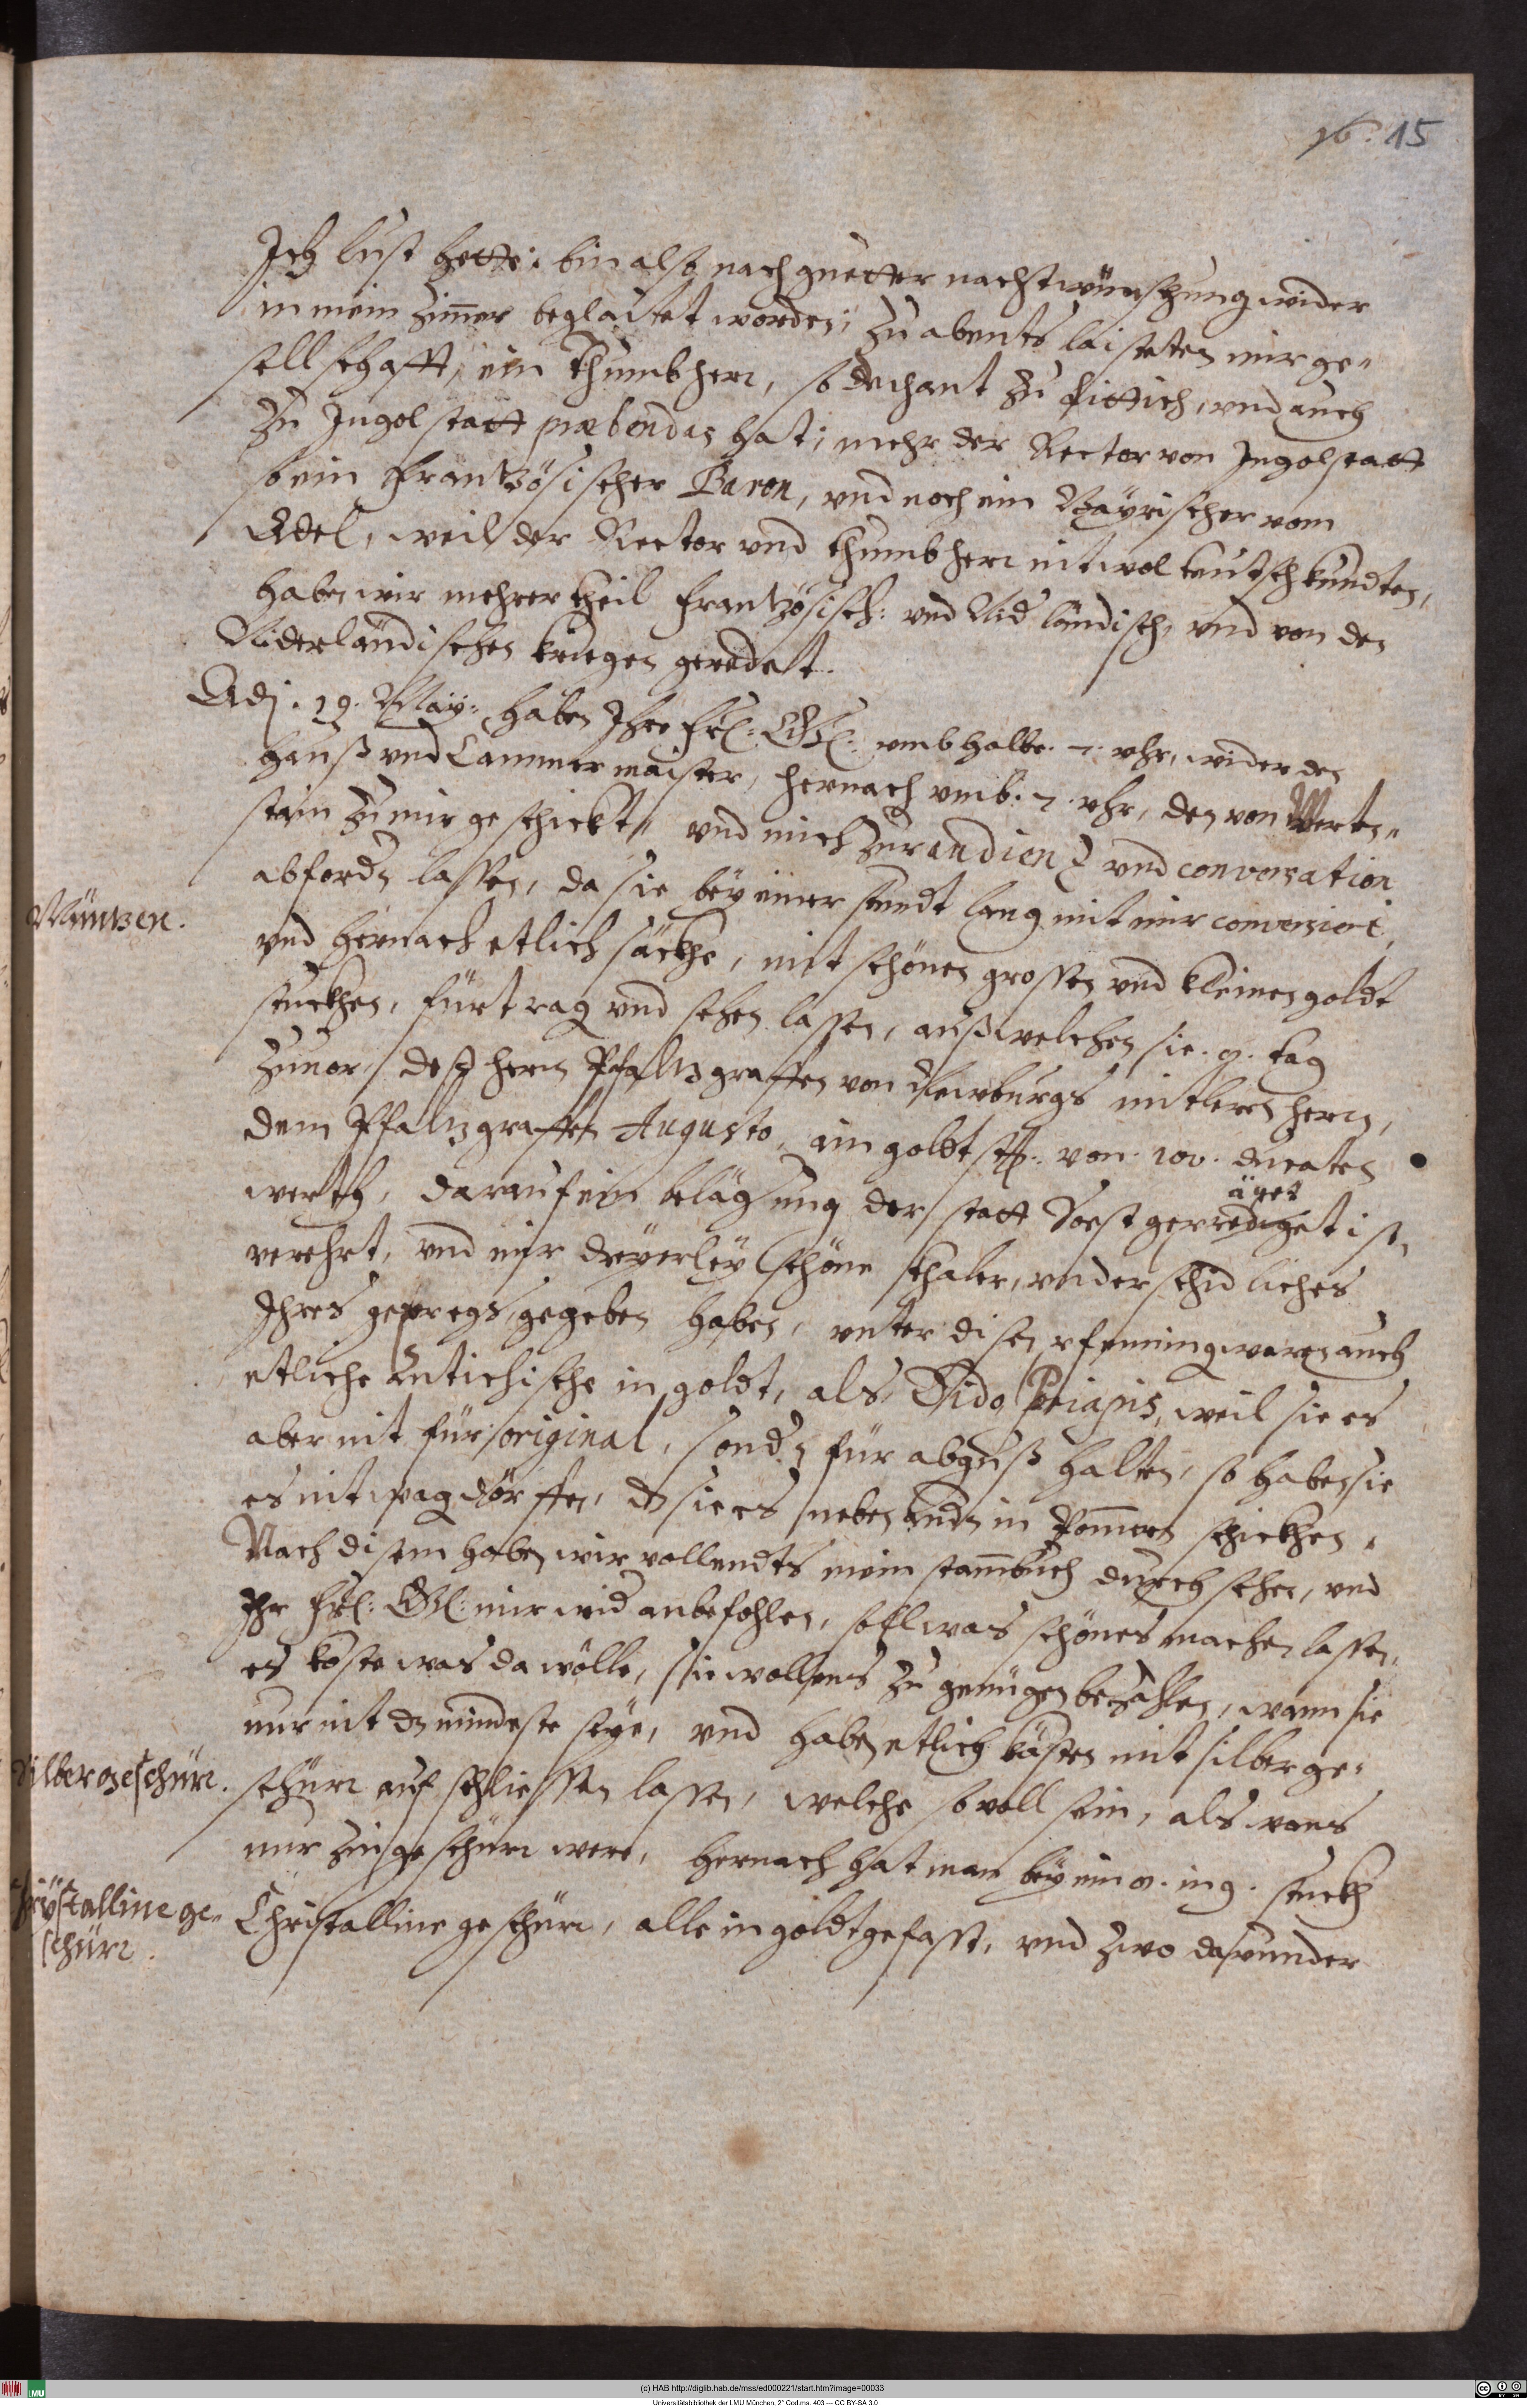 16. 15
Ich lust hette: bin also nach guetter nachtwünschung wider
in mein Zimer beglaitet worden; Zu abents laisteten mir ge¬
sellschafft, ein Thumbherr, so dechant zu Littich, vnd auch
Zu Ingolstatt præbendas hat; mehr der Rector von Ingolstatt
so ein Frantzösischer Baron, vnd noch ein Bayrischer vom
Adel, weil der Rector vnd thumbherr nit wol teutsch kundten,
haben wir mehrer theil frantzösisch: vnd Nid ländisch, vnd von den
Niderländischen kriegen geredet.
Adj. 19. May: haben Ihre frl: Gl: vmb halbe 7. vhr, wider den
Hauß vnd Cammermaister, hernach vmb. 7. vhr, den von Werten¬
stain zu mir geschickt, vnd mich zur audienz vnd conversation
abfordn lassen, da sie bey einer stundt lang mit mir conversiert,
Müntzen.
vnd hernach etlich säckhe, mit schönen grossen vnd kleinen goldt
stuckhen, fürtrag vnd sehen lassen, auß welchen sie. 8. tag
zuuor, deß herrn Pfaltzgraffen von Newburgs mitlern herrn,
dem Pfaltzgraffen Augusto, ein goldt stk: von. 100. ducaten
werth, darauf ein belägerung der statt Soest geprediget ist,
äget
verehrt, vnd mir dreyerley schöne thaler, vnderschidliches
Ihres gepregs, gegeben haben, vnter disen pfenning waren auch
etliche Antichische in goldt, als Dido, Priapis, weil sie es
aber nit für original, sondn für abguß halten, so haben sie
es nit wag dörffen, dz sie es neben andn in Pomern schickhen.
Nach disem haben wir vollendts mein stambuch durchsehen, vnd
Ihr frl: Gl: mir wid anbefohlen, soll was schönes machen lassen,
es koste was da wölle, sie wollens zu genüegen bezahlen, wann sie
nur nit dz mindeste seye, vnd haben etlich kästen mit silber ge¬
Silbergeschürr.
schürr auf schliessen lassen, welche so voll sein, als wans
nur Zingeschürr were, hernach hat man bey ein 8. in 9. stuckh
Crÿstalline ge¬
schürr.
Christalline geschürr, alle in goldt gefasst, vnd zwo darunder
(c) HAB http://diglib.hab.de/mss/ed000221/start.htm?image=00033
Universitätsbibliothek der LMU München, 2° Cod.ms. 403 — CC BY-SA 3.0
LMU